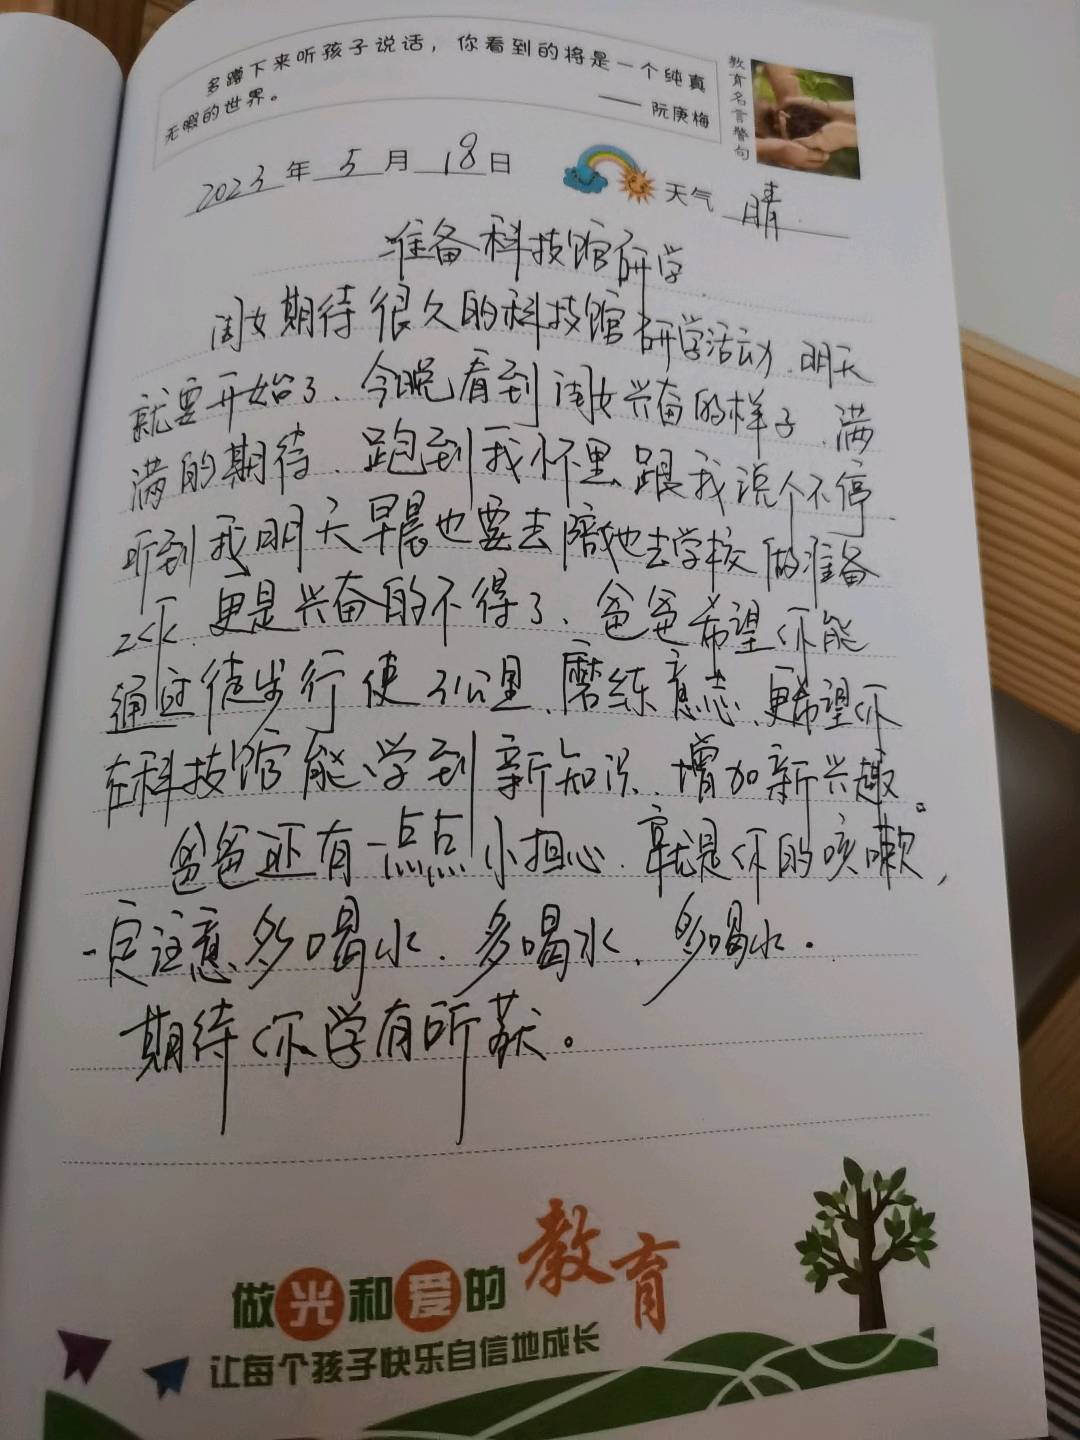 多蹲下来听孩子说话，你看到的将是一个纯真
无暇的世界。
—— 阮庚梅
教育名言警句
2023年5月18日
天气 晴
准备科技馆研学
闺女期待很久的科技馆研学活动、明天
就要开始了、今晚看到闺女兴奋的样子、满
满的期待、跑到我怀里跟我说个不停
听到我明天早晨也要去陪她去学校做准备
工作、更是兴奋的不得了、爸爸希望你能
通过徒步行使3公里、磨练意志、更希望你
在科技馆能学到新知识、增加新兴趣。
爸爸还有一点点小担心、就是你的咳嗽，
一定注意多喝水、多喝水、多喝水。
期待你学有所获。
做光和爱的教育
让每个孩子快乐自信地成长